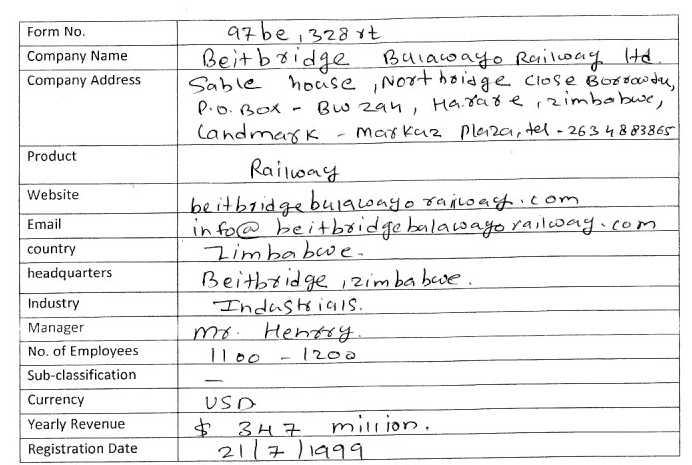 Form No. 97be, 328rt
Company Name Beitbridge Bulawayo Railway ltd.
Company Address Sable house, Northbridge Close Borrowdu,
P.O. Box - BW 294, Harare, Zimbabwe,
Landmark - Markaz Plaza, tel - 263 4 883865
Product Railway
Website beitbridgebulawayorailway.com
Email info@beitbridgebulawayorailway.com
country Zimbabwe.
headquarters Beitbridge, zimbabwe.
Industry Industrials.
Manager Mr. Henrry.
No. of Employees 1100 - 1200
Sub-classification —
Currency USD
Yearly Revenue $ 347 million.
Registration Date 21/7/1999